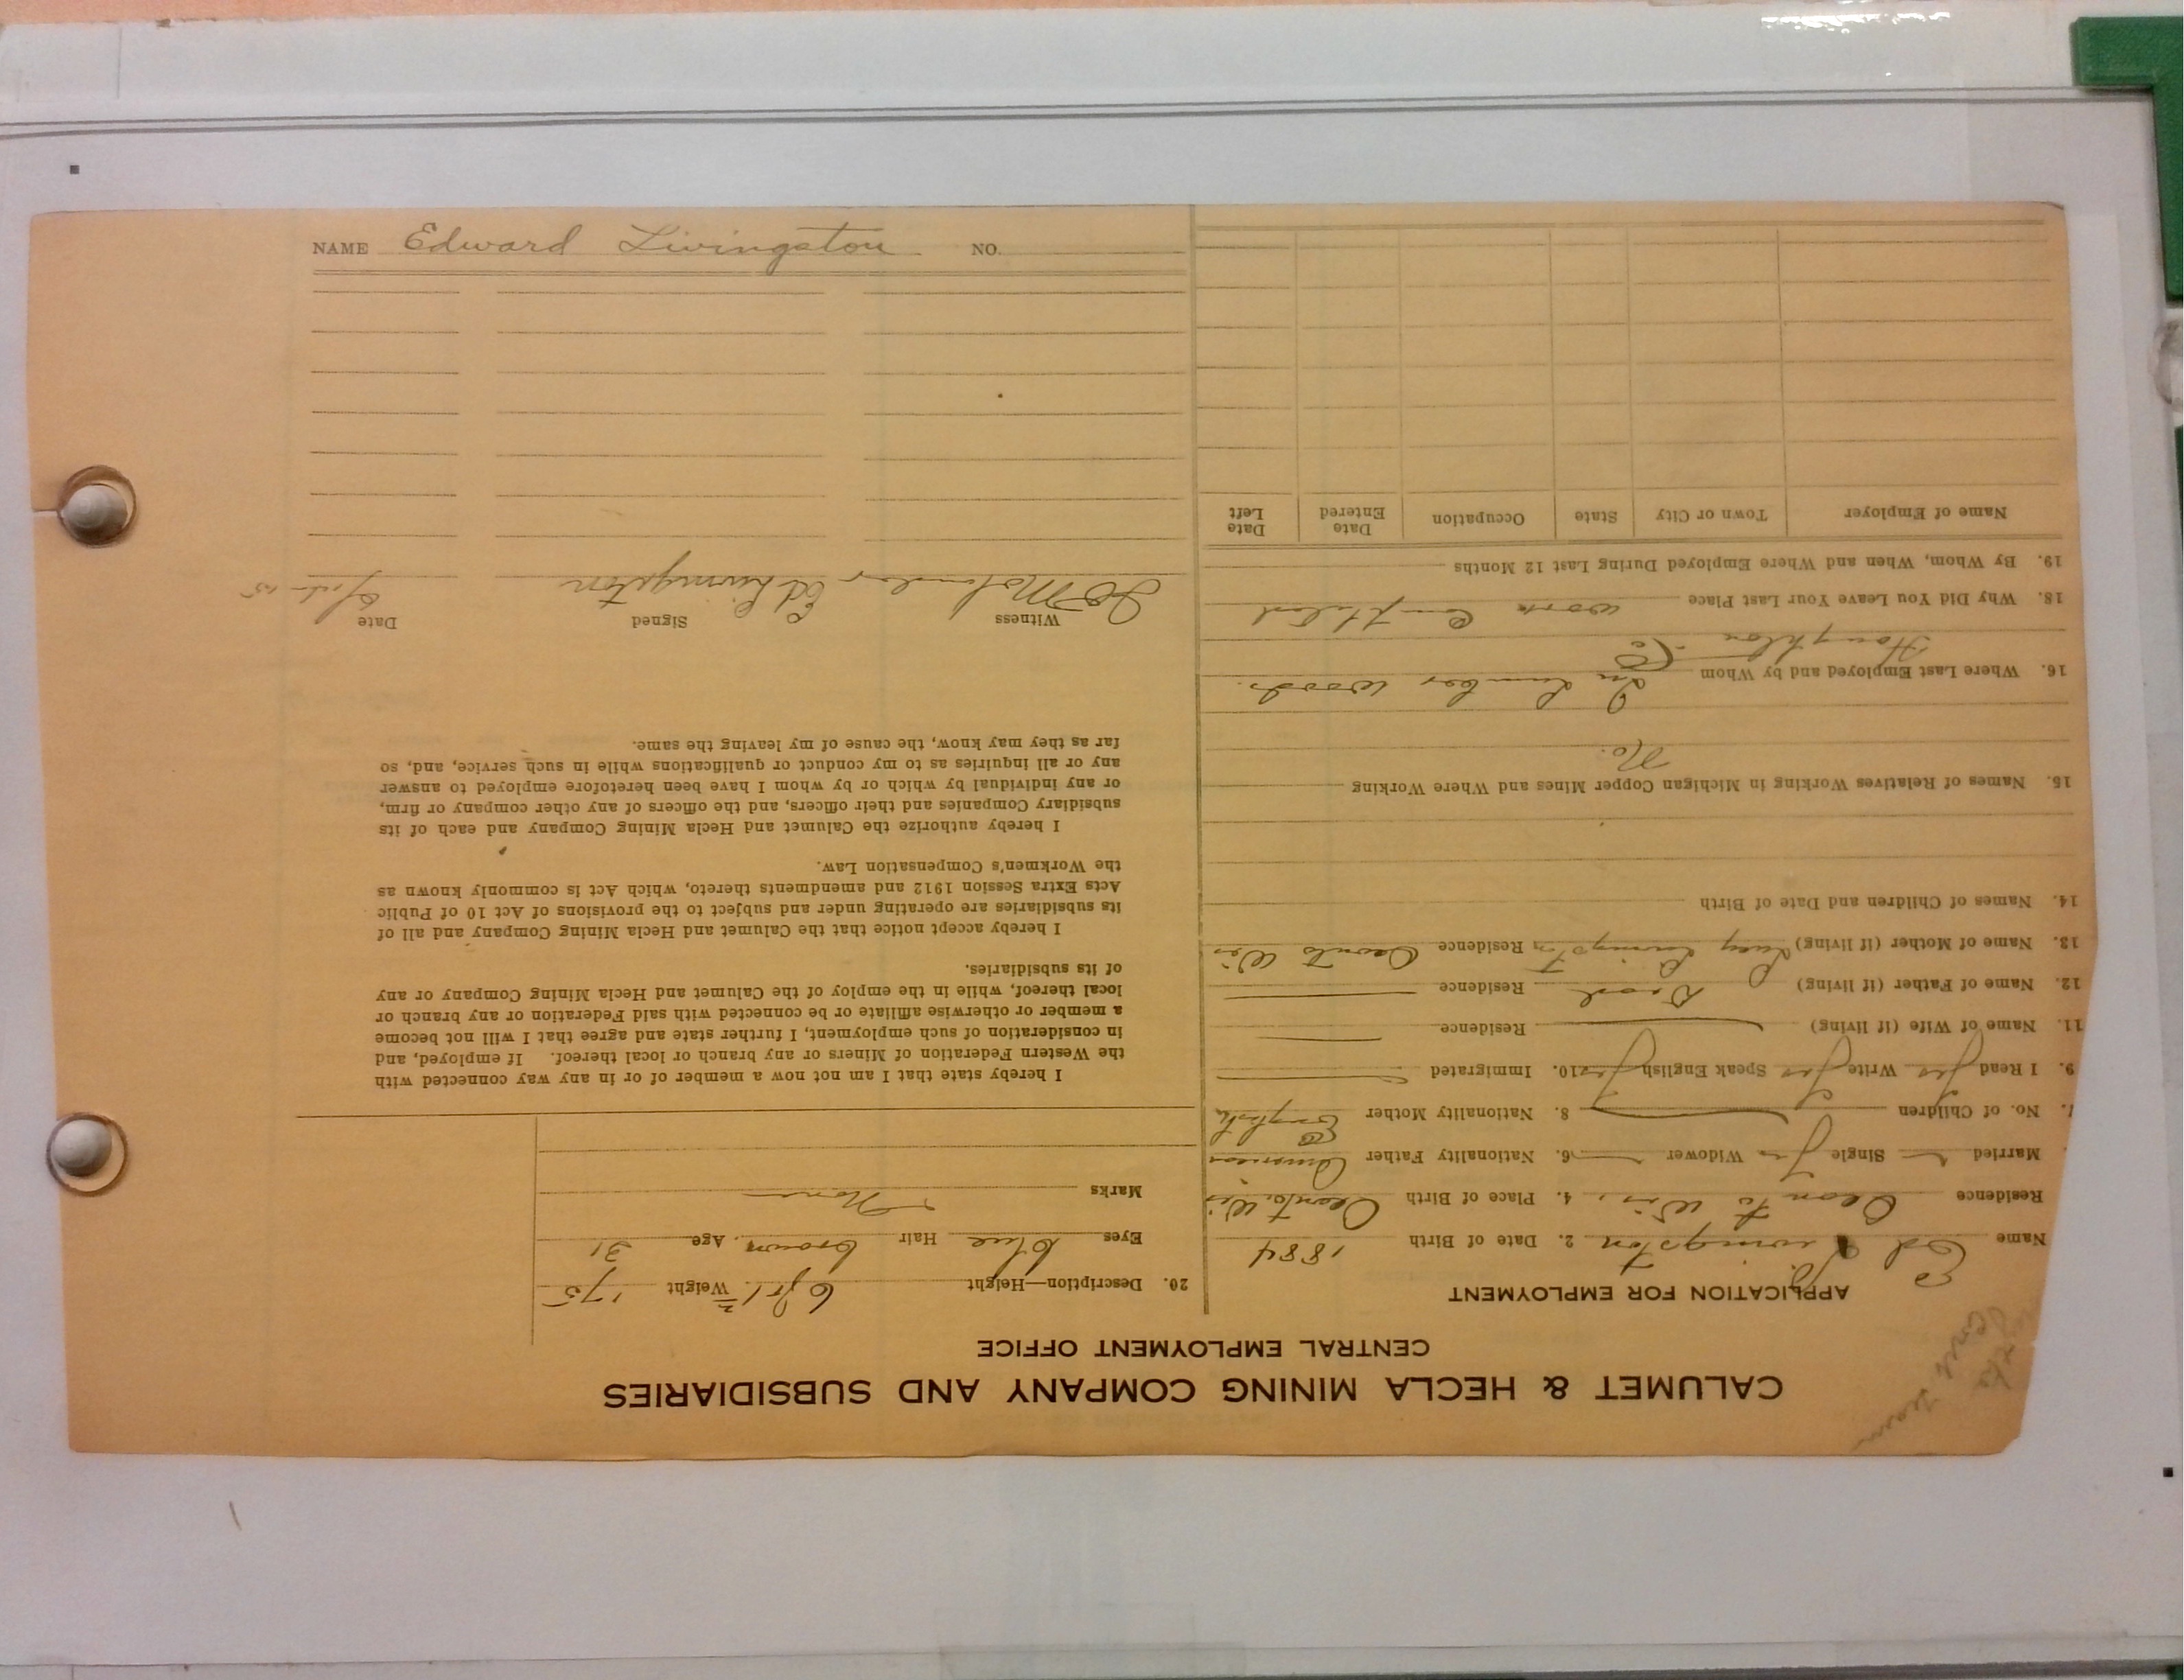 NAME Edward Livingston NO.
CALUMET & HECLA MINING COMPANY AND SUBSIDIARIES
CENTRAL EMPLOYMENT OFFICE
APPLICATION FOR EMPLOYMENT
Name Ed Livingston 2. Date of Birth 1884
Residence Oconto Wis. 4. Place of Birth Oconto Wis
Married Single Yes Widower 6. Nationality Father American
No. of Children 8. Nationality Mother English
9. I Read Yes Write Yes Speak English Yes 10. Immigrated
11. Name of Wife (if living) Residence
12. Name of Father (if living) Dead Residence
13. Name of Mother (if living) Lucy Livingston Residence Oconto Wis
14. Names of Children and Date of Birth
15. Names of Relatives Working in Michigan Copper Mines and Where Working
No.
16. Where Last Employed and by Whom In Lumber Woods.
Houghton Co
18. Why Did You Leave Your Last Place work Completed
19. By Whom, When and Where Employed During Last 12 Months
Name of Employer Town or City State Occupation Date Entered Date Left
20. Description—Height 6 ft 1 2 Weight 175
Eyes blue Hair brown. Age 31
Marks None
I hereby state that I am not now a member of or in any way connected with
the Western Federation of Miners or any branch or local thereof. If employed, and
in consideration of such employment, I further state and agree that I will not become
a member or otherwise affiliate or be connected with said Federation or any branch or
local thereof, while in the employ of the Calumet and Hecla Mining Company or any
of its subsidiaries.
I hereby accept notice that the Calumet and Hecla Mining Company and all of
its subsidiaries are operating under and subject to the provisions of Act 10 of Public
Acts Extra Session 1912 and amendments thereto, which Act is commonly known as
the Workmen's Compensation Law.
I hereby authorize the Calumet and Hecla Mining Company and each of its
subsidiary Companies and their officers, and the officers of any other company or firm,
or any individual by which or by whom I have been heretofore employed to answer
any or all inquiries as to my conduct or qualifications while in such service, and, so
far as they may know, the cause of my leaving the same.
Witness Signed Date
Ed Livingston